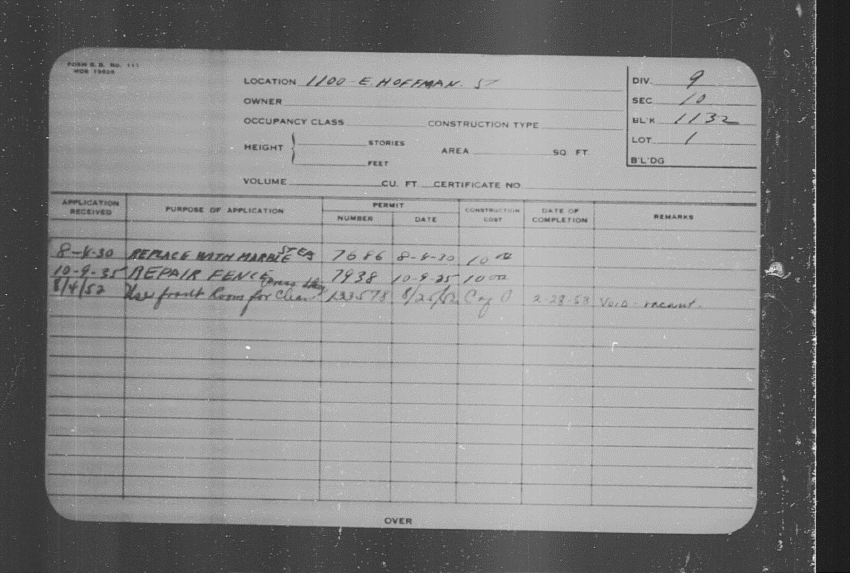 FORM B. B. No. 111
LOCATION 1100 - E. HOFFMAN. ST
DIV. 9
OWNER
SEC 10
OCCUPANCY CLASS CONSTRUCTION TYPE
BL'K 1132
HEIGHT STORIES AREA SQ. FT.
LOT 1
FEET
B'L'DG
VOLUME CU. FT. CERTIFICATE NO.
APPLICATION RECEIVED PURPOSE OF APPLICATION PERMIT CONSTRUCTION COST DATE OF COMPLETION REMARKS
NUMBER DATE
8-8-30 REPLACE WITH MARBLE STEPS 7686 8-8-30 10 00
10-9-35 REPAIR FENCE 7938 10-9-35 10 00
8/4/52 Use front Room for Clean 8/25/52 2-28-53 Void - vacant.
OVER